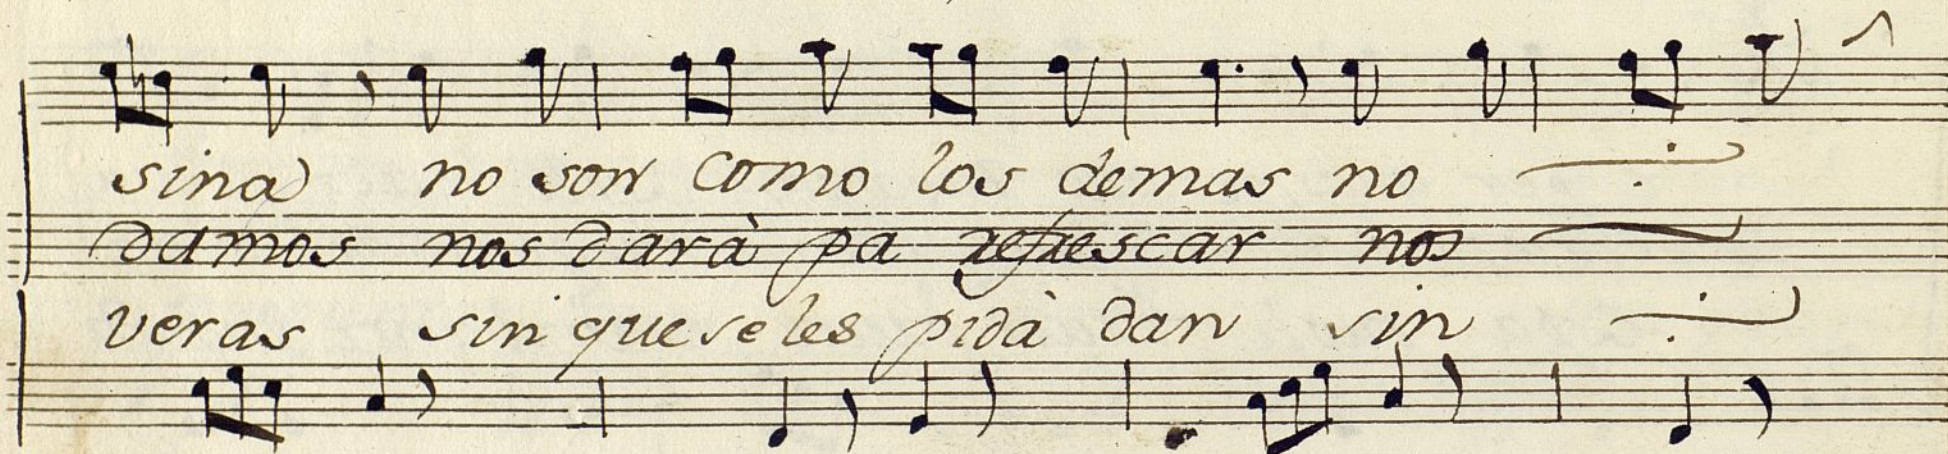 sina no son como los demas no
damos nos darà pa refrescar nos
veras sin que se les pida dan sin